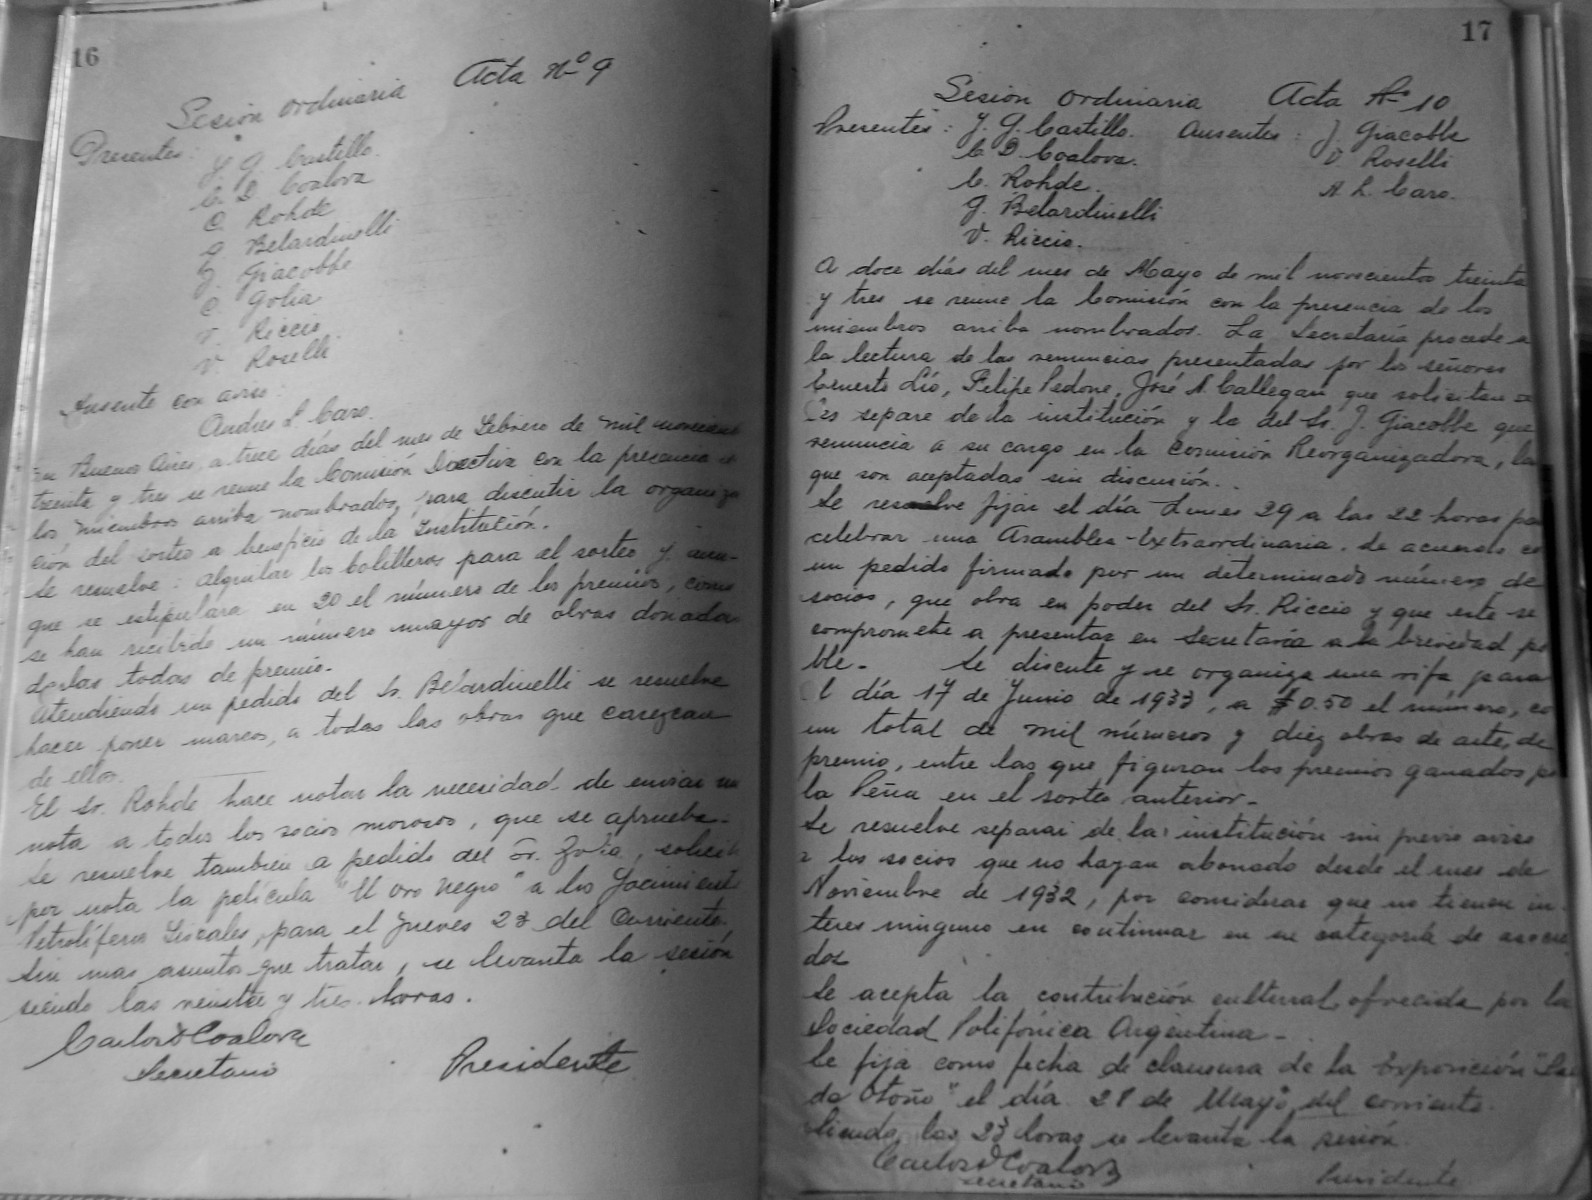 16
Sesión Ordinaria Acta Nº 9
Presentes: J. G. Castillo.
C. D. Coalova
C. Rohde
G. Belardinelli
J. Giacobbe
C. Golia
V. Riccio
V. Roselli
Ausente con aviso:
Andres L. Caro.
En Buenos Aires, a trece días del mes de Febrero de mil novecientos
treinta y tres se reune la Comisión Directiva con la presencia de
los miembros arriba nombrados, para discutir la organiza
ción del sorteo a beneficio de la Institución.
Se resuelve: alquilar los bolilleros para el sorteo y aun-
que se estipulara en 20 el número de los premios, como
se han recibido un número mayor de obras donadas
darlas todas de premio.
Atendiendo un pedido del Sr. Belardinelli se resuelve
hacer poner marcos, a todas las obras que carezcan
de ellos.
El Sr. Rohde hace notar la necesidad de enviar una
nota a todos los socios morosos, que se aprueba.-
Se resuelve tambien a pedido del Sr. Golia, solicitar
por nota la película "El oro negro" a los Yacimientos
Petrolíferos Fiscales, para el jueves 23 del corriente.
Sin mas asuntos que tratar, se levanta la sesión
siendo las veinte y tres horas.
Carlos D Coalova
Secretario Presidente
17
Sesión Ordinaria Acta Nº 10
Presentes: J. G. Castillo. Ausentes: J. Giacobbe
C. D. Coalova. V. Roselli
C. Rohde. A. L. Caro.
G. Belardinelli
V. Riccio.
A doce días del mes de Mayo de mil novecientos treinta
y tres se reune la Comisión con la presencia de los
miembros arriba nombrados. La Secretaría procede a
la lectura de las renuncias presentadas por los señores
Ernesto Lío, Felipe Pedone, José N. Callegari que solicitan se
les separe de la institución y la del Sr. J. Giacobbe que
renuncia a su cargo en la Comisión Reorganizadora, las
que son aceptadas sin discusión..
Se resuelve fijar el día Lunes 29 a las 22 horas para
celebrar una Asamblea Extraordinaria. de acuerdo con
un pedido firmado por un determinado número de
socios, que obra en poder del Sr. Riccio y que este se
compromete a presentar en Secretaría a la brevedad posi
ble.- Se discute y se organiza una rifa para
el día 17 de Junio de 1933, a $ 0.50 el número, con
un total de mil números y diez obras de arte, de
premio, entre las que figuran los premios ganados por
la Peña en el sorteo anterior.-
Se resuelve separar de la institución sin previo aviso
a los socios que no hayan abonado desde el mes de
Noviembre de 1932, por considerar que no tienen in-
teres ninguno en continuar en su categoría de asocia
dos
Se acepta la contribución cultural ofrecida por la
Sociedad Polifónica Argentina.-
Se fija como fecha de clausura de la Exposición "
de Otoño" el día 28 de Mayo del corriente.
Siendo las 23 horas se levanta la sesión.
Carlos D Coalova
Secretario Presidente